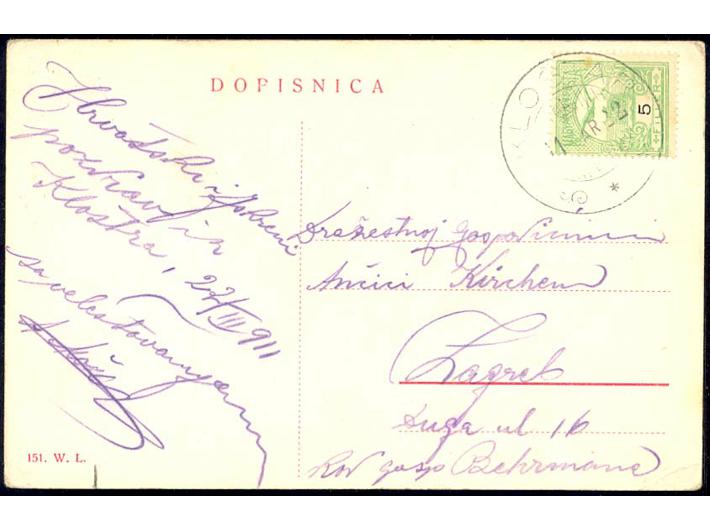 DOPISNICA
5
FILLÉR
Hrvatski i iskreni
pozdrav iz
Kloštra, 22/III 911
sa veleštovanjem
Dražestnoj gospodični
Ančici Kirchen
Zagreb
Duga ul 16
Kod gosp Behrmana
151. W. L.